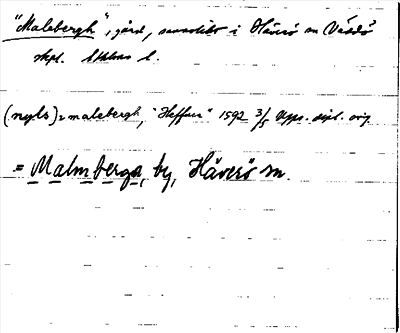 "Malebergh", gård, sannolikt i Häverö sn Väddö
skpl. Sthlms l.
(nyb)= malebergh, "Heffuer" 1592 3/5 Upps. dipl. orig.
= Malmberga, by, Häverö sn.